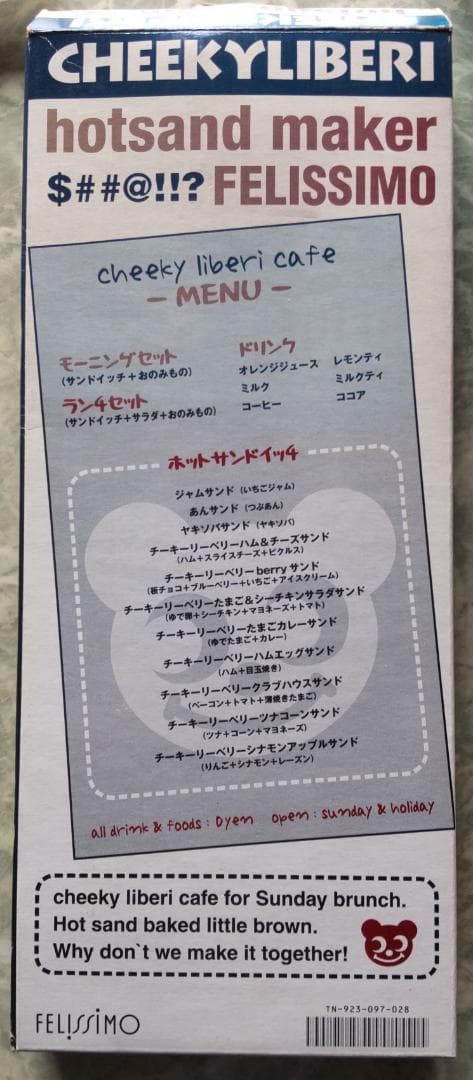 CHEEKYLIBERI
hotsand maker
$##@!!? FELISSIMO
cheeky liberi cafe
- MENU -
モーニングセット
(サンドイッチ+おのみもの)
ランチセット
(サンドイッチ+サラダ+おのみもの)
ドリンク
オレンジジュース レモンティ
ミルク ミルクティ
コーヒー ココア
ホットサンドイッチ
ジャムサンド (いちごジャム)
あんサンド (つぶあん)
ヤキソバサンド (ヤキソバ)
チーキーリーベリーハム&チーズサンド
(ハム+スライスチーズ+ピクルス)
チーキーリーベリーberryサンド
(板チョコ+ブルーベリー+いちご+アイスクリーム)
チーキーリーベリーたまご&シーチキンサラダサンド
(ゆで卵+シーチキン+マヨネーズ+トマト)
チーキーリーベリーたまごカレーサンド
(ゆでたまご+カレー)
チーキーリーベリーハムエッグサンド
(ハム+目玉焼き)
チーキーリーベリークラブハウスサンド
(ベーコン+トマト+薄焼きたまご)
チーキーリーベリーツナコーンサンド
(ツナ+コーン+マヨネーズ)
チーキーリーベリーシナモンアップルサンド
(りんご+シナモン+レーズン)
all drink & foods : 0yen open : sunday & holiday
cheeky liberi cafe for Sunday brunch.
Hot sand baked little brown.
Why don`t we make it together!
FELISSIMO
TN-923-097-028